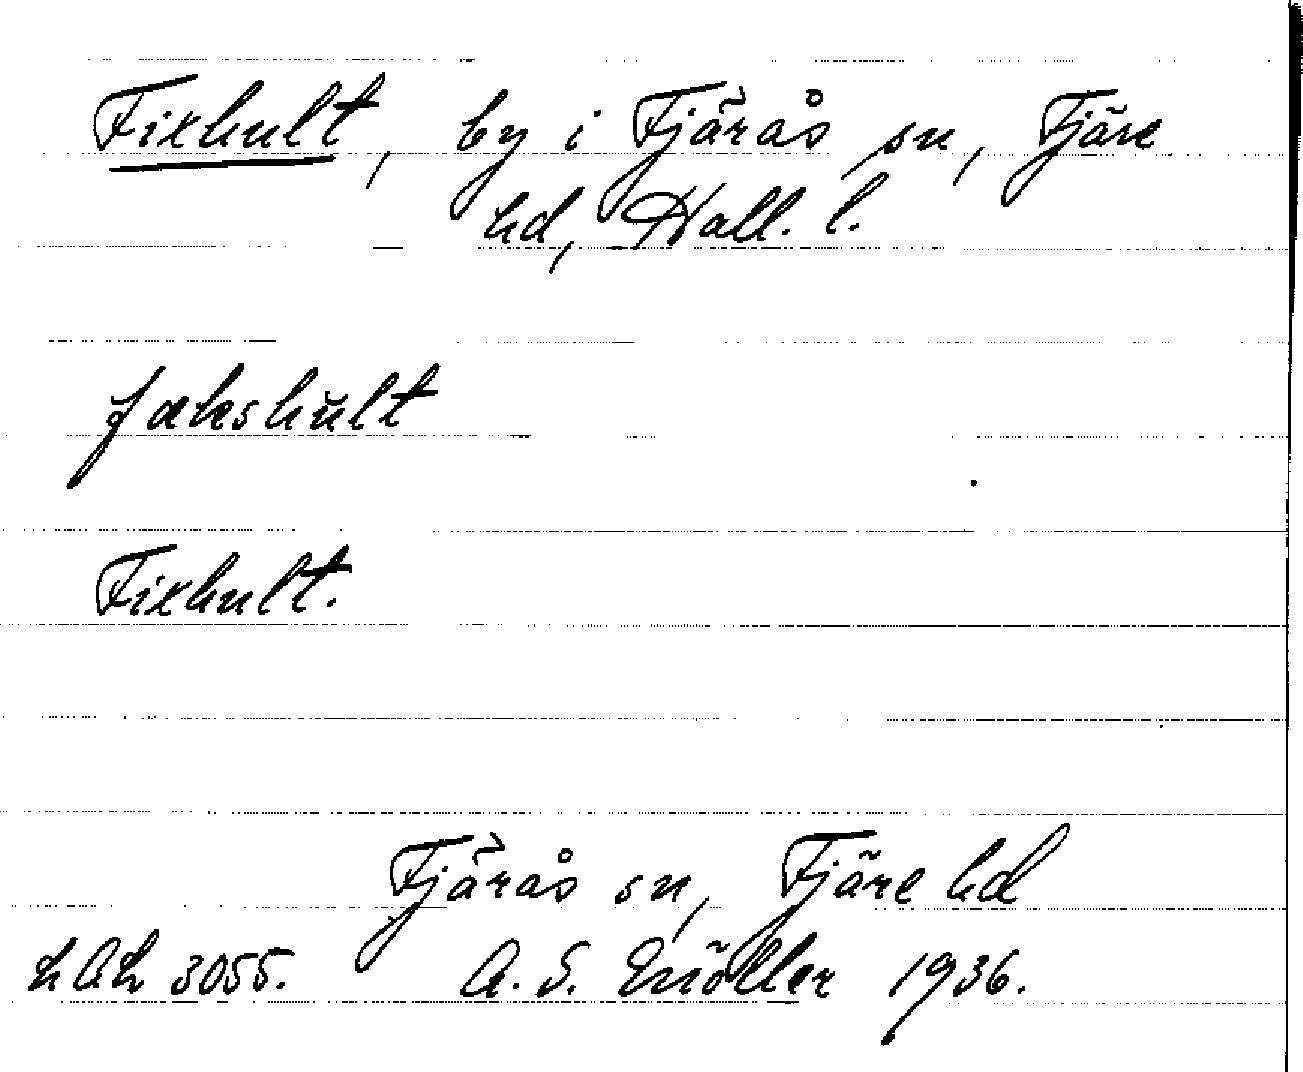 Fixhult, by i Fjärås sn, Fjäre
hd, Hall. l.
fækshŭlt
Fixhult.
Fjärås sn, Fjäre hd
LAL 3055. A. S. Möller 1936.